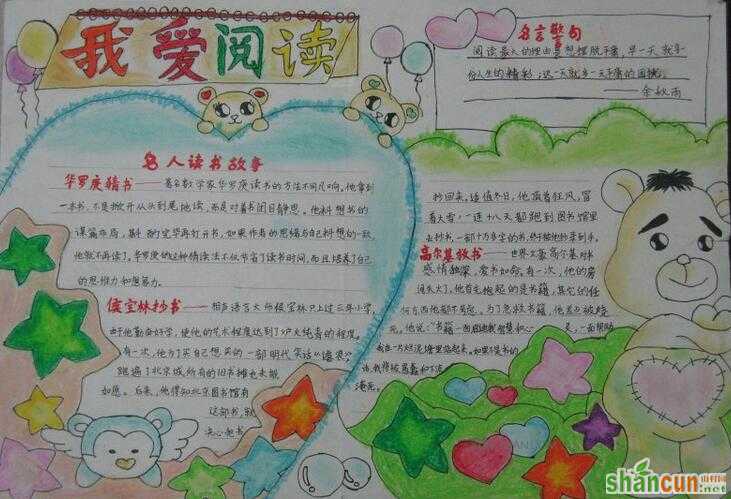 我爱阅读
名言警句
阅读最大的理由是想摆脱平庸,早一天就多一
份人生的精彩;迟一天就多一天平庸的困扰。
——余秋雨
名人读书故事
华罗庚猜书——著名数学家华罗庚读书的方法不同凡响。他拿到
一本书,不是掀开从头到尾地读,而是对着书闭目静思。他料想书的
谋篇布局,斟酌完毕再打开书,如果作者的思绪与自己料想的一致,
他就不再读了。华罗庚的这种猜读法不仅节省了读书时间,而且培养了自己
的思维力和想象力。
侯宝林抄书——相声语言大师侯宝林只上过三年小学,
由于他勤奋好学,使他的艺术程度达到了炉火纯青的程度。
有一次,他为了买自己想买的一部明代笑话《谑浪》
跑遍了北京城所有的旧书摊也未能
如愿。后来,他得知北京图书馆有
这部书,就
决心把书
抄回来。适值冬日,他顶着狂风,冒
着大雪,一连十八天都跑到图书馆里
去抄书,一部十万多字的书,终于被他抄录到手。
高尔基救书——世界文豪高尔基对书
感情独深,爱书如命。有一次,他的房
间失火了,他首先抱起的是书籍,其它的任
何东西他都不考虑。为了急救书籍,他差点被烧
死。他说:“书籍一面启迪我智慧和心
是,一面帮助
我在一片烂泥塘里站起来。如果不是书的
话,我将被愚蠢和下流
淹死。
shancun.net
山村网